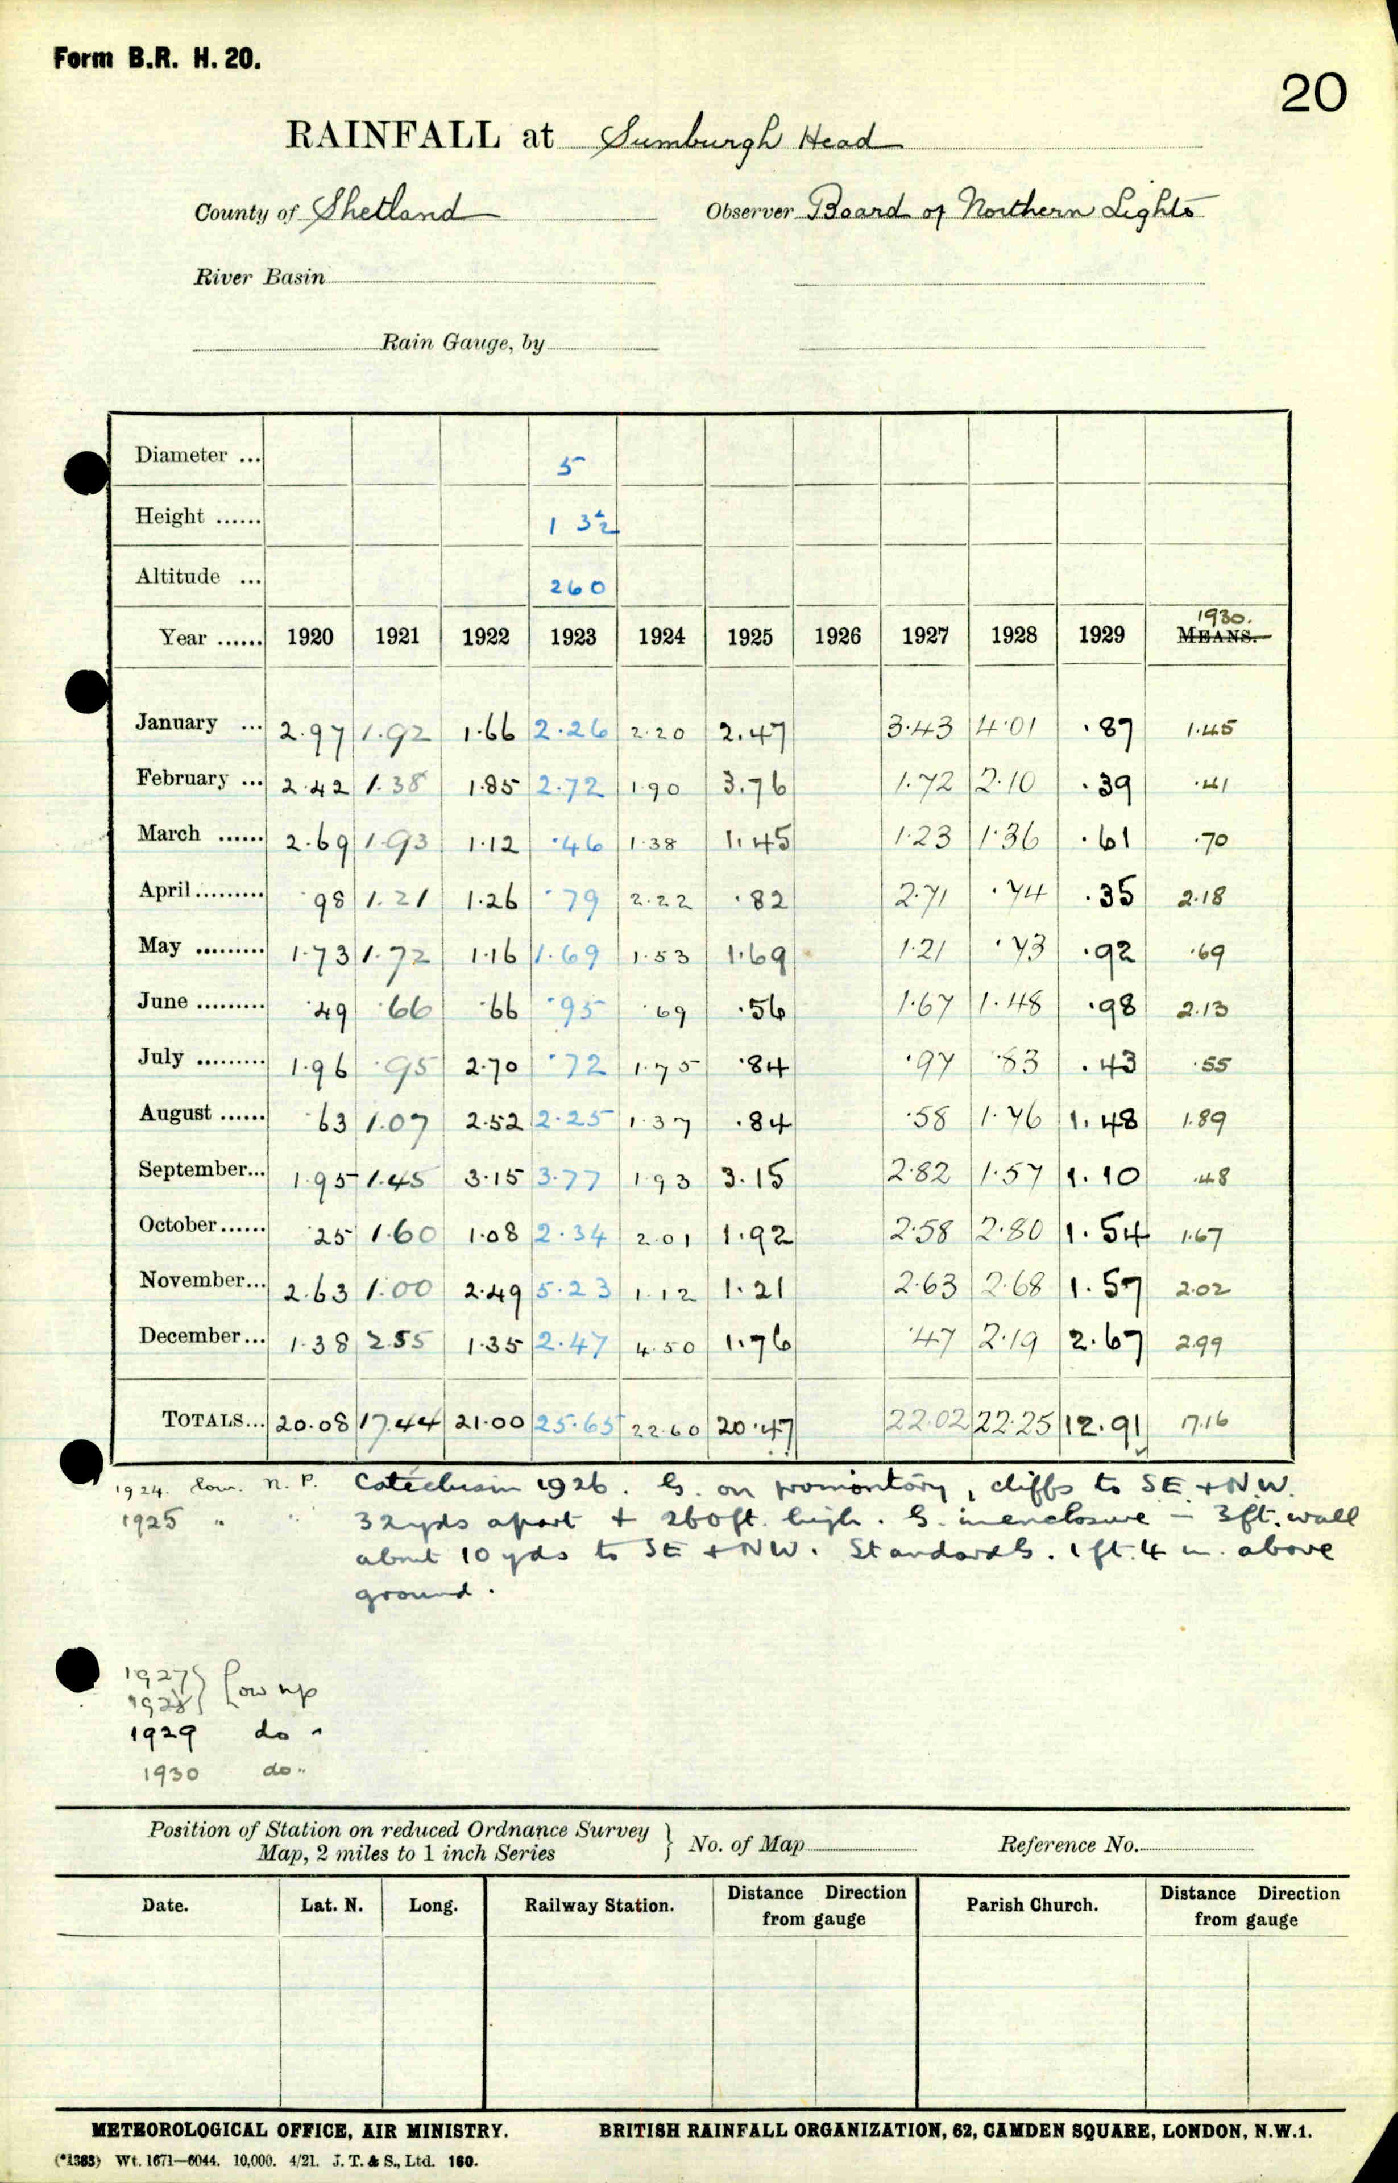 Form B.R. H. 20.
20
RAINFALL at Sumburgh Head
County of Shetland Observer Board of Northern Lights
River Basin
Rain Gauge, by
Diameter ... 5
Height ...... 1 3½
Altitude ... 260
1930.
Year ...... 1920 1921 1922 1923 1924 1925 1926 1927 1928 1929 MEANS.
January ... 2.97 1.92 1.66 2.26 2.20 2.47 3.43 4.01 .87 1.45
February ... 2.42 1.38 1.85 2.72 1.90 3.76 1.72 2.10 .39 .41
March ...... 2.69 1.93 1.12 .46 1.38 1.45 1.23 1.36 .61 .70
April ......... .98 1.21 1.26 .79 2.22 .82 2.71 .74 .35 2.18
May ......... 1.73 1.72 1.16 1.69 1.53 1.69 1.21 .73 .92 .69
June ......... .49 .66 .66 .95 .69 .56 1.67 1.48 .98 2.13
July ......... 1.96 .95 2.70 .72 1.75 .84 .97 .83 .43 .55
August ...... .63 1.07 2.52 2.25 1.37 .84 .58 1.76 1.48 1.89
September... 1.95 1.45 3.15 3.77 1.93 3.15 2.82 1.57 1.10 .48
October...... .25 1.60 1.08 2.34 2.01 1.92 2.58 2.80 1.54 1.67
November... 2.63 1.00 2.49 5.23 1.12 1.21 2.63 2.68 1.57 2.02
December... 1.38 2.55 1.35 2.47 4.50 1.76 .47 2.19 2.67 2.99
TOTALS... 20.08 17.44 21.00 25.65 22.60 20.47 22.02 22.25 12.91 17.16
1924. n. P. Catechism 1926. G. on promontory, cliffs to SE. + N.W.
1925 " " 32yds apart + 260ft. high. G. in enclosure – 3ft. wall
about 10 yds to SE + NW. Standard G. 1 ft. 4 in. above
ground.
1927
1928 } Low np
1929 do "
1930 do "
Position of Station on reduced Ordnance Survey
Map, 2 miles to 1 inch Series } No. of Map Reference No.
Date. Lat. N. Long. Railway Station. Distance Direction from gauge Parish Church. Distance Direction from gauge
METEOROLOGICAL OFFICE, AIR MINISTRY. BRITISH RAINFALL ORGANIZATION, 62, CAMDEN SQUARE, LONDON, N.W.1.
(*1383) Wt. 1671—6044. 10,000. 4/21. J. T. & S., Ltd. 160.